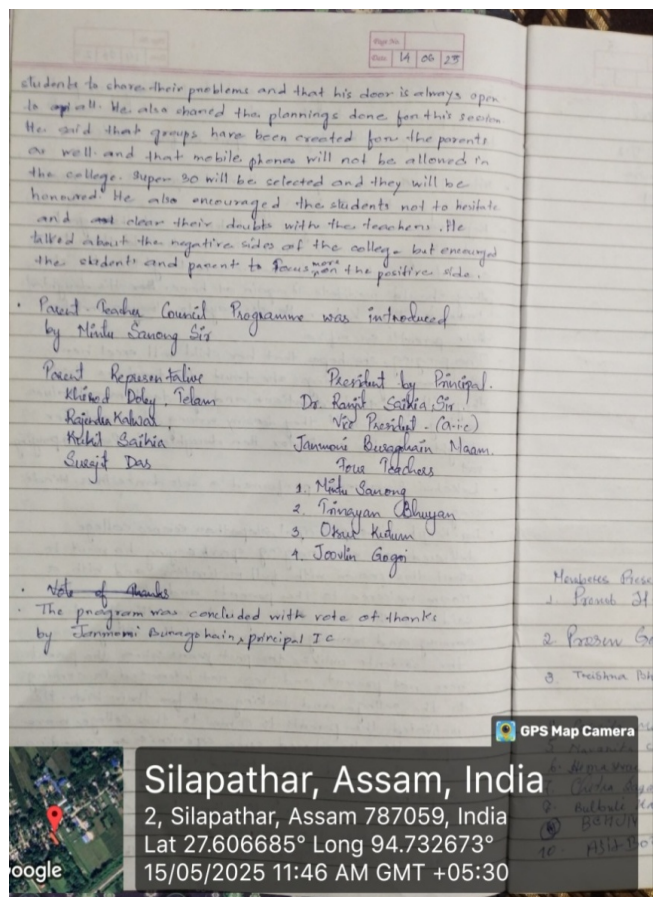 Page No.
Date 14 06 23
students to share their problems and that his door is always open
to all. He also shared the plannings done for this session
He said that groups have been created for the parents
as well and that mobile phones will not be allowed in
the college. Super 30 will be selected and they will be
honoured. He also encouraged the students not to hesitate
and clear their doubts with the teachers. He
talked about the negative sides of the college but encouraged
the students and parent to focus more on the positive side.
. Parent-Teacher Council Programme was introduced
by Mintu Sanong Sir
Parent Representative
Khirod Doley, Telam
Rajendra Kalwar
Rohit Saikia
Surajit Das
President by Principal.
Dr. Ranjit Saikia Sir
Vice President - (a.i.c)
Janmoni Buragohain Maam.
Four Teachers
1. Mintu Sanong
2. Trinayan Bhuyan
3. Kutum
4. Jovlin Gogoi
. Vote of thanks
. The program was concluded with vote of thanks
by Janmoni Buragohain, principal IC
Members Prese
1. Pranab
2. Prasen Go
3. Trishna
10.
GPS Map Camera
Silapathar, Assam, India
2, Silapathar, Assam 787059, India
Lat 27.606685° Long 94.732673°
15/05/2025 11:46 AM GMT +05:30
oogle